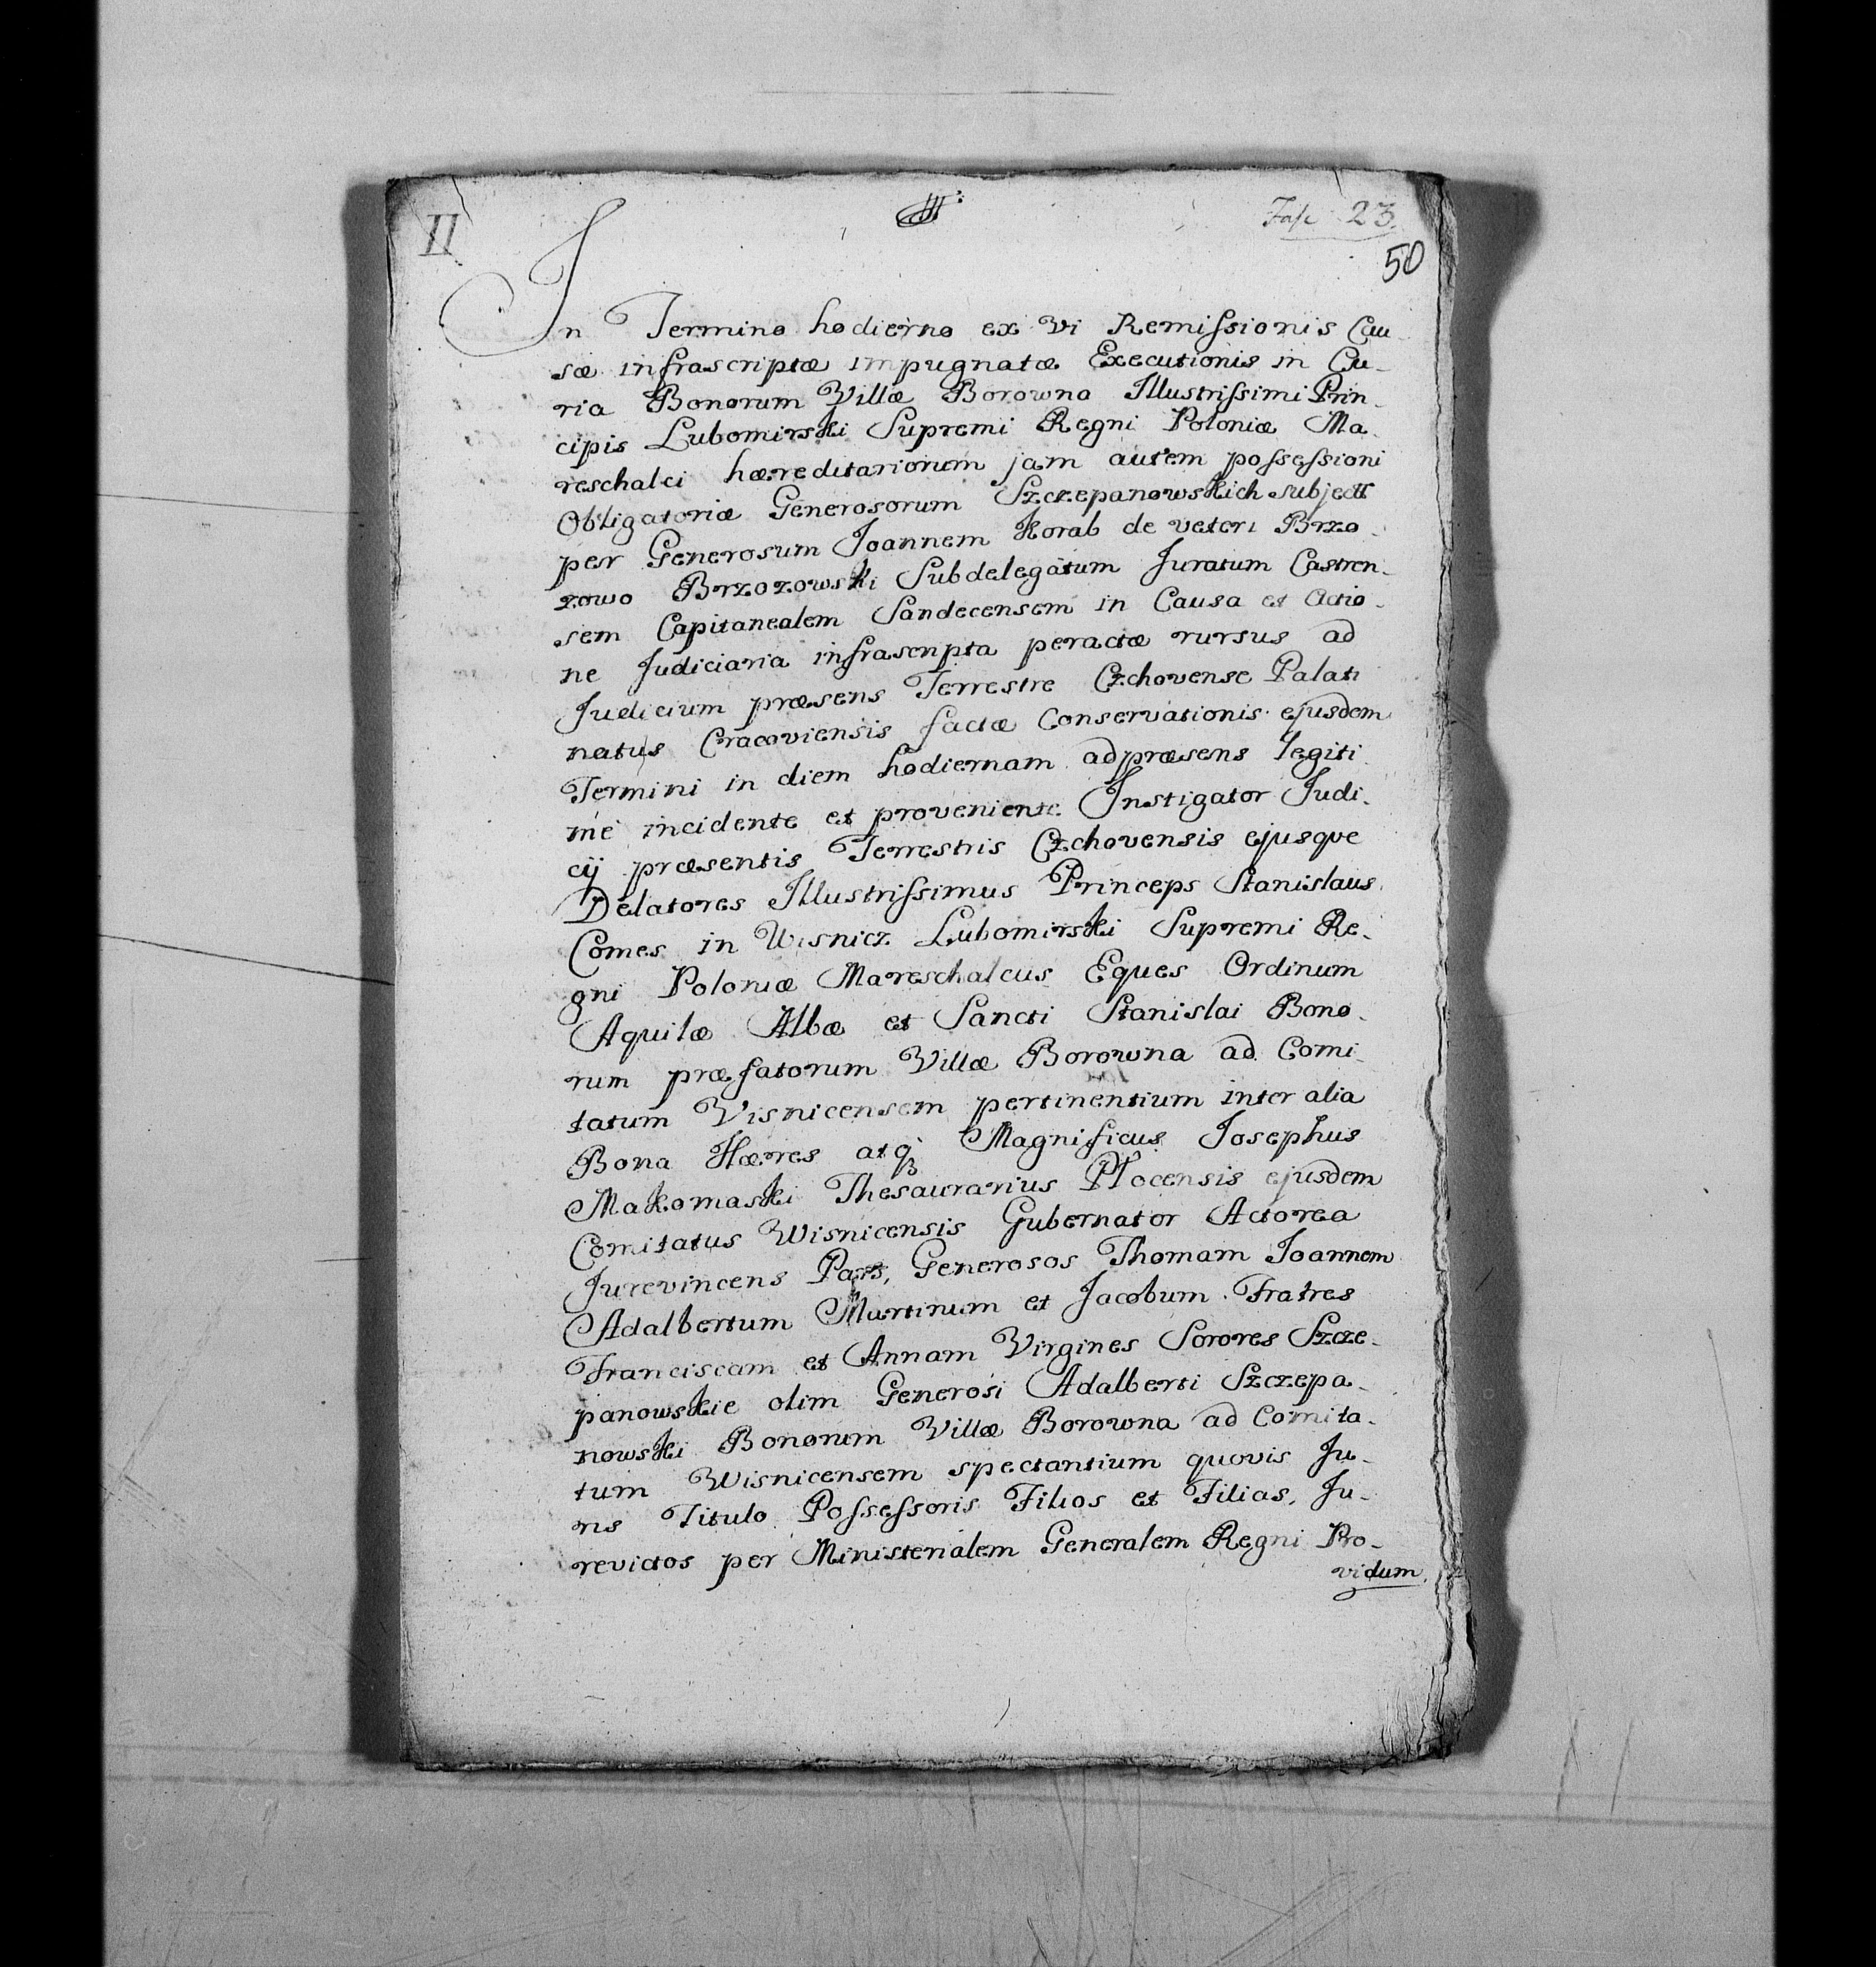 II
Fasc 23.
50
In Termino hodierno ex Vi Remissionis Cau-
sæ infrascriptæ impugnatæ Executionis in Cu-
ria Bonorum Villæ Borowna Illustrissimi Prin-
cipis Lubomirski Supremi Regni Poloniæ Ma-
reschalci hæreditariorum jam autem possessioni
Obligatoriæ Generosorum Szczepanowskich subject
per Generosum Joannem Korab de veteri Brzo-
zowo Brzozowski Subdelegatum Juratum Castren-
sem Capitanealem Sandecensem in Causa et Actio-
ne Judiciaria infrascripta peractæ rursus ad
Judicium præsens Terrestre Czchovense Palati
natus Cracoviensis factæ Conservationis ejusdem
Termini in diem hodiernam ad præsens legiti
me incidente et proveniente. Instigator Judi-
cij præsentis Terrestris Czchovensis ejusqve
Delatores Illustrissimus Princeps Stanislaus
Comes in Wisnicz Lubomirski Supremi Re-
gni Poloniæ Mareschalcus Eques Ordinum
Aquilæ Albæ et Sancti Stanislai Bono-
rum præfatorum Villæ Borowna ad Comi-
tatum Visnicensem pertinentium inter alia
Bona Hæres atq Magnificus Josephus
Makomaski Thesaurarius Plocensis ejusdem
Comitatus Wisnicensis Gubernator Actorea
Jurevincens Pars, Generosos Thomam Joannem
Adalbertum Martinum et Jacobum Fratres
Franciscam et Annam Virgines Sorores Szcze-
panowskie olim Generosi Adalberti Szczepa-
nowski Bonorum Villæ Borowna ad Comita-
tum Wisnicensem spectantium quovis Ju-
ris Titulo Possessoris Filios et Filias, Ju-
revictos per Ministerialem Generalem Regni Pro-
vidum